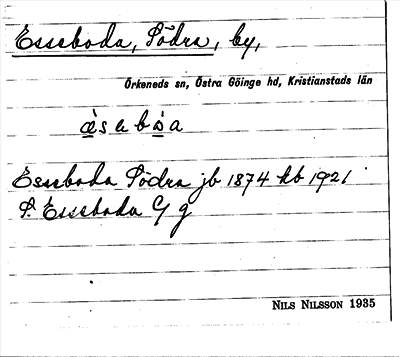 Esseboda, Södra, by,
Örkeneds sn, Östra Göinge hd, Kristianstads län
Esseboda Södra jb 1874 kb 1921
S. Esseboda G g
NILS NILSSON 1935